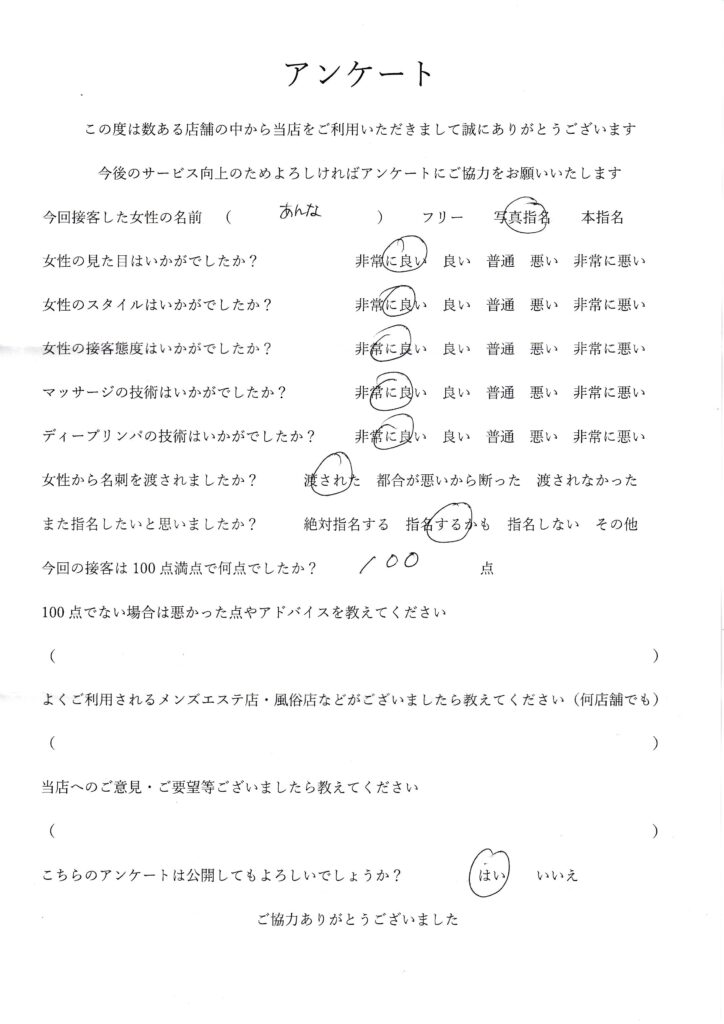 アンケート
この度は数ある店舗の中から当店をご利用いただきまして誠にありがとうございます
今後のサービス向上のためよろしければアンケートにご協力をお願いいたします
今回接客した女性の名前 （ あんな ） フリー 写真指名 本指名
女性の見た目はいかがでしたか？ 非常に良い 良い 普通 悪い 非常に悪い
女性のスタイルはいかがでしたか？ 非常に良い 良い 普通 悪い 非常に悪い
女性の接客態度はいかがでしたか？ 非常に良い 良い 普通 悪い 非常に悪い
マッサージの技術はいかがでしたか？ 非常に良い 良い 普通 悪い 非常に悪い
ディープリンパの技術はいかがでしたか？ 非常に良い 良い 普通 悪い 非常に悪い
女性から名刺を渡されましたか？ 渡された 都合が悪いから断った 渡されなかった
また指名したいと思いましたか？ 絶対指名する 指名するかも 指名しない その他
今回の接客は 100 点満点で何点でしたか？ 100 点
100 点でない場合は悪かった点やアドバイスを教えてください
（ ）
よくご利用されるメンズエステ店・風俗店などがございましたら教えてください（何店舗でも）
（ ）
当店へのご意見・ご要望等ございましたら教えてください
（ ）
こちらのアンケートは公開してもよろしいでしょうか？ はい いいえ
ご協力ありがとうございました